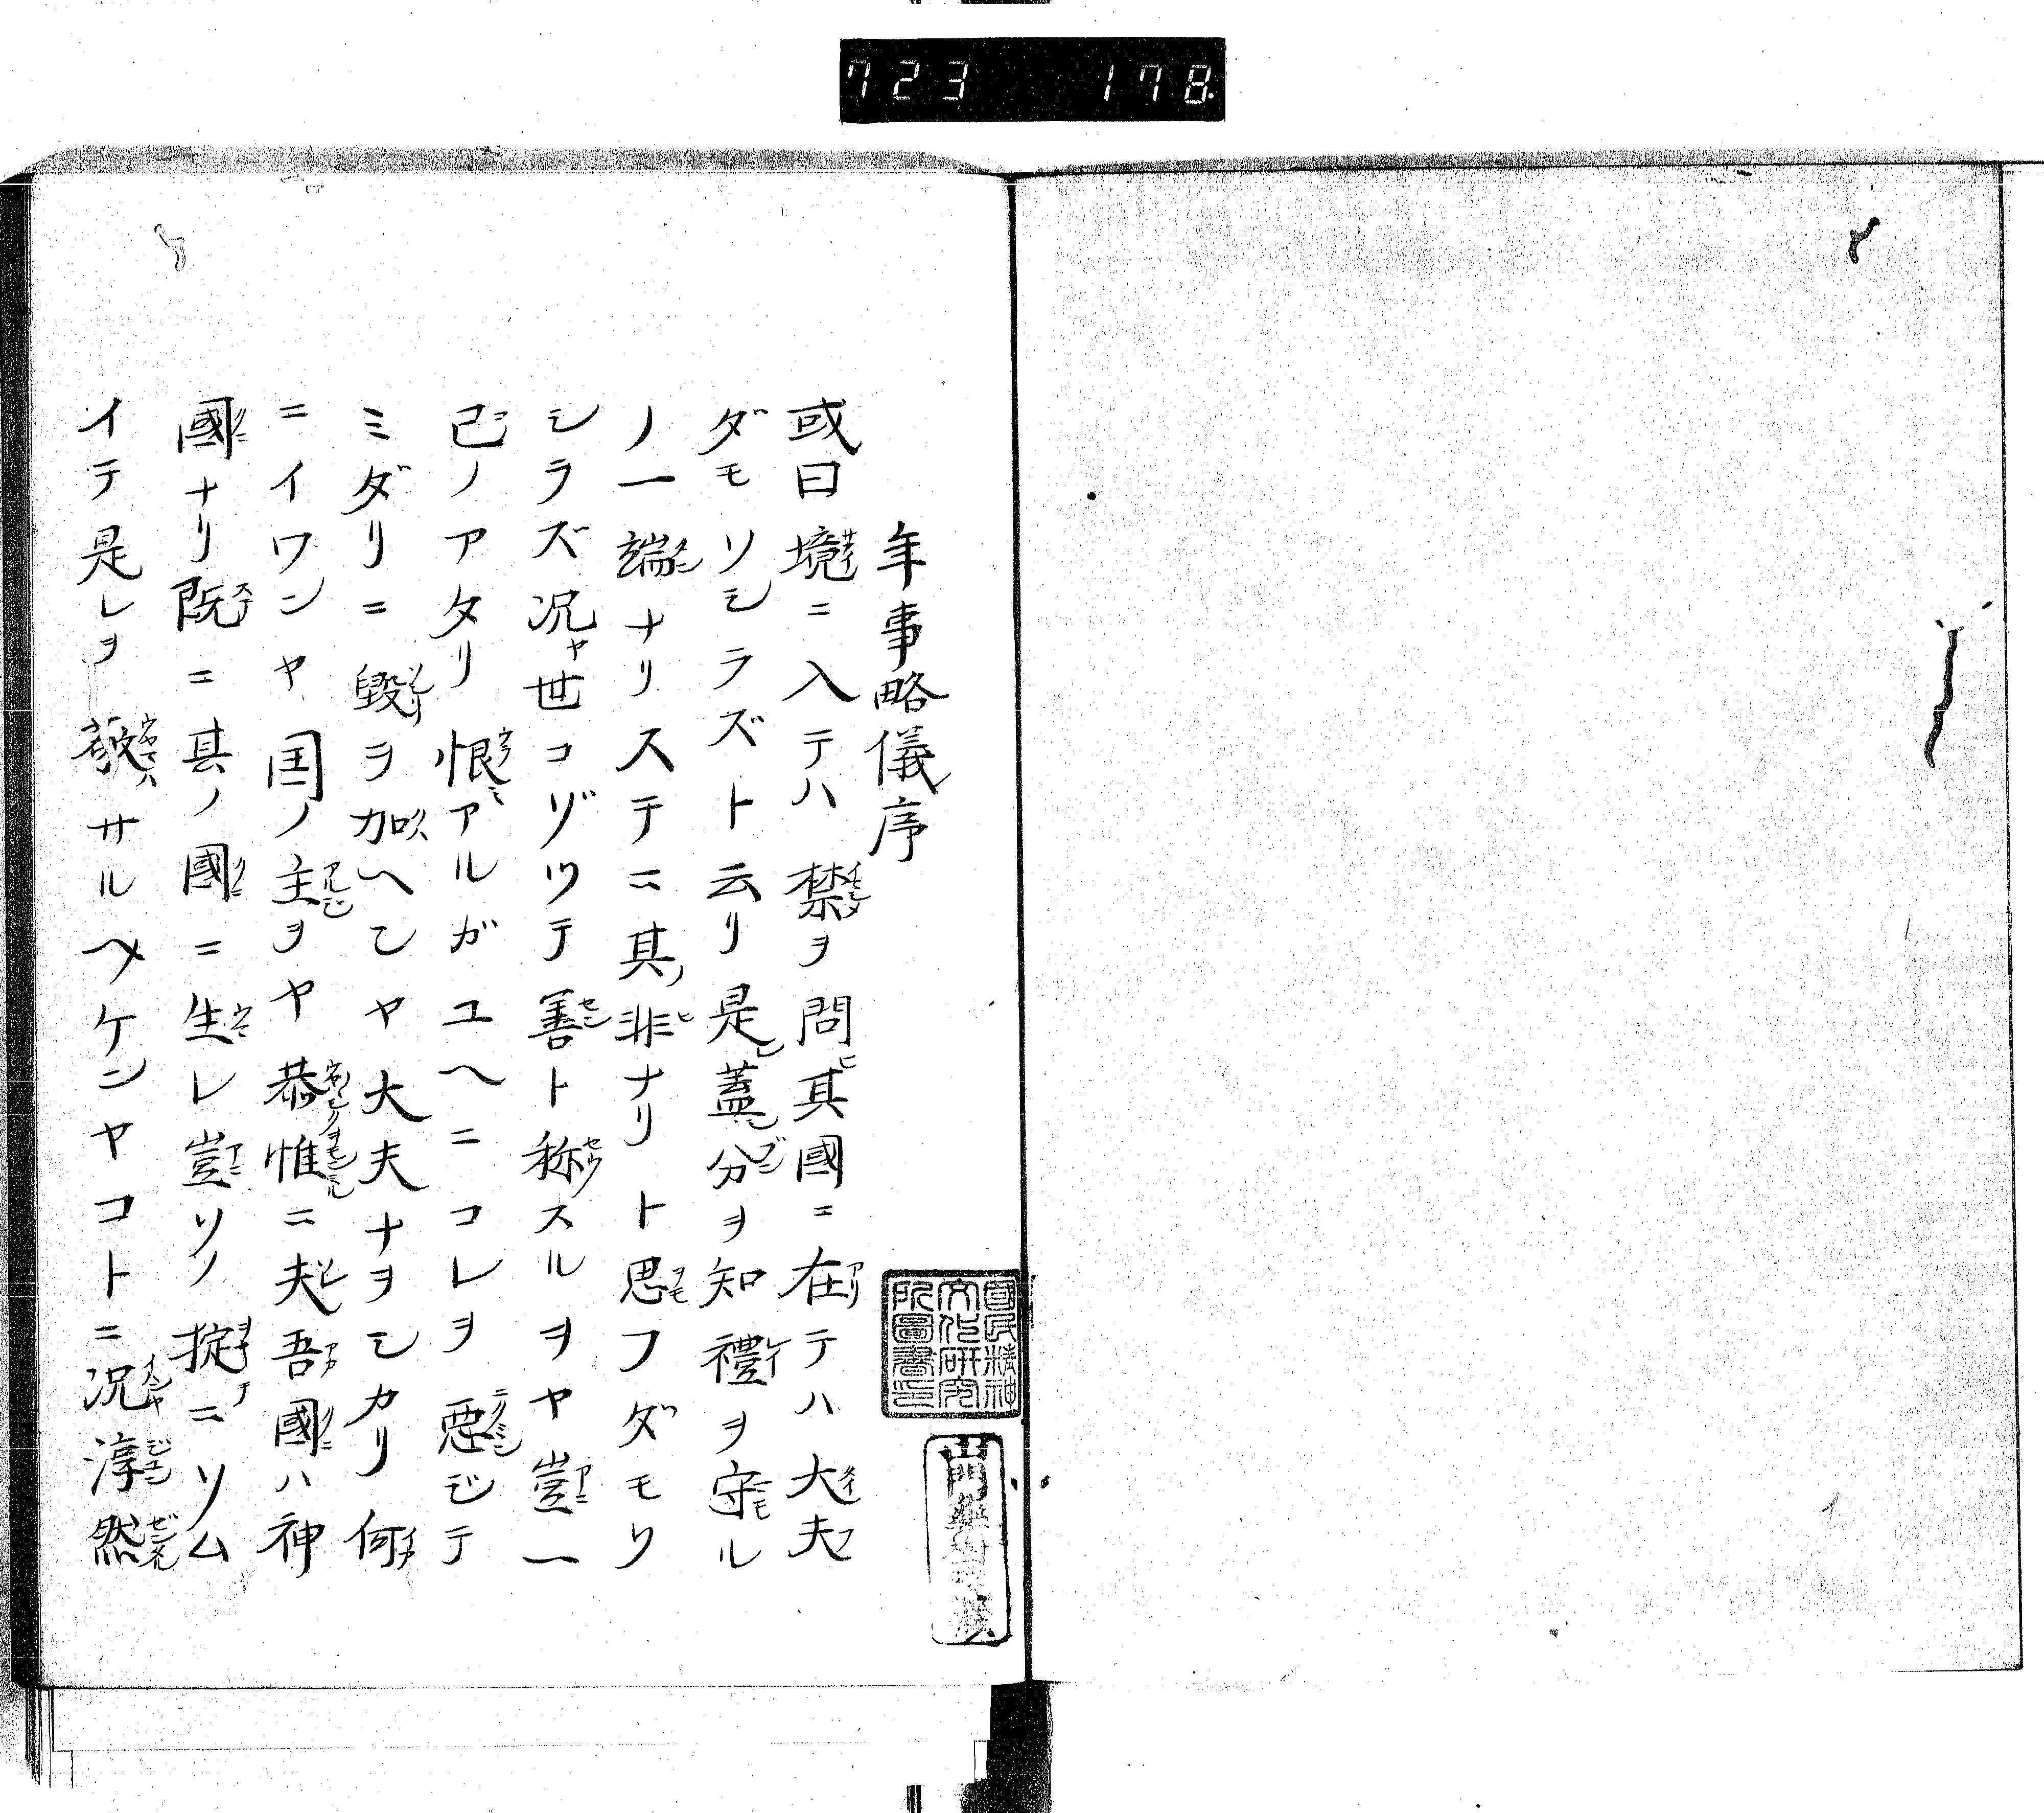 723 178
年事略儀序
或曰境ニ入テハ禁ヲ問其國ニ在テハ大夫
ダモソシラズト云リ是蓋分ヲ知禮ヲ守ル
ノ一端ナリステニ其非ナリト思フダモソ
シラズ況ヤ世コゾツテ善ト称スルヲヤ豈一
己ノアタリ恨アルガユヘニコレヲ悪シテ
ミダリニ毀ヲ加ヘンヤ大夫ナヲシカリ何
ニイワンヤ国ノ主ヲヤ恭惟ニ夫吾國ハ神
國ナリ既ニ其ノ國ニ生レ豈ソノ掟ニソム
イテ是レヲ敬サルヘケンヤコトニ況淳然
國民精神
文化研究
所圖書印